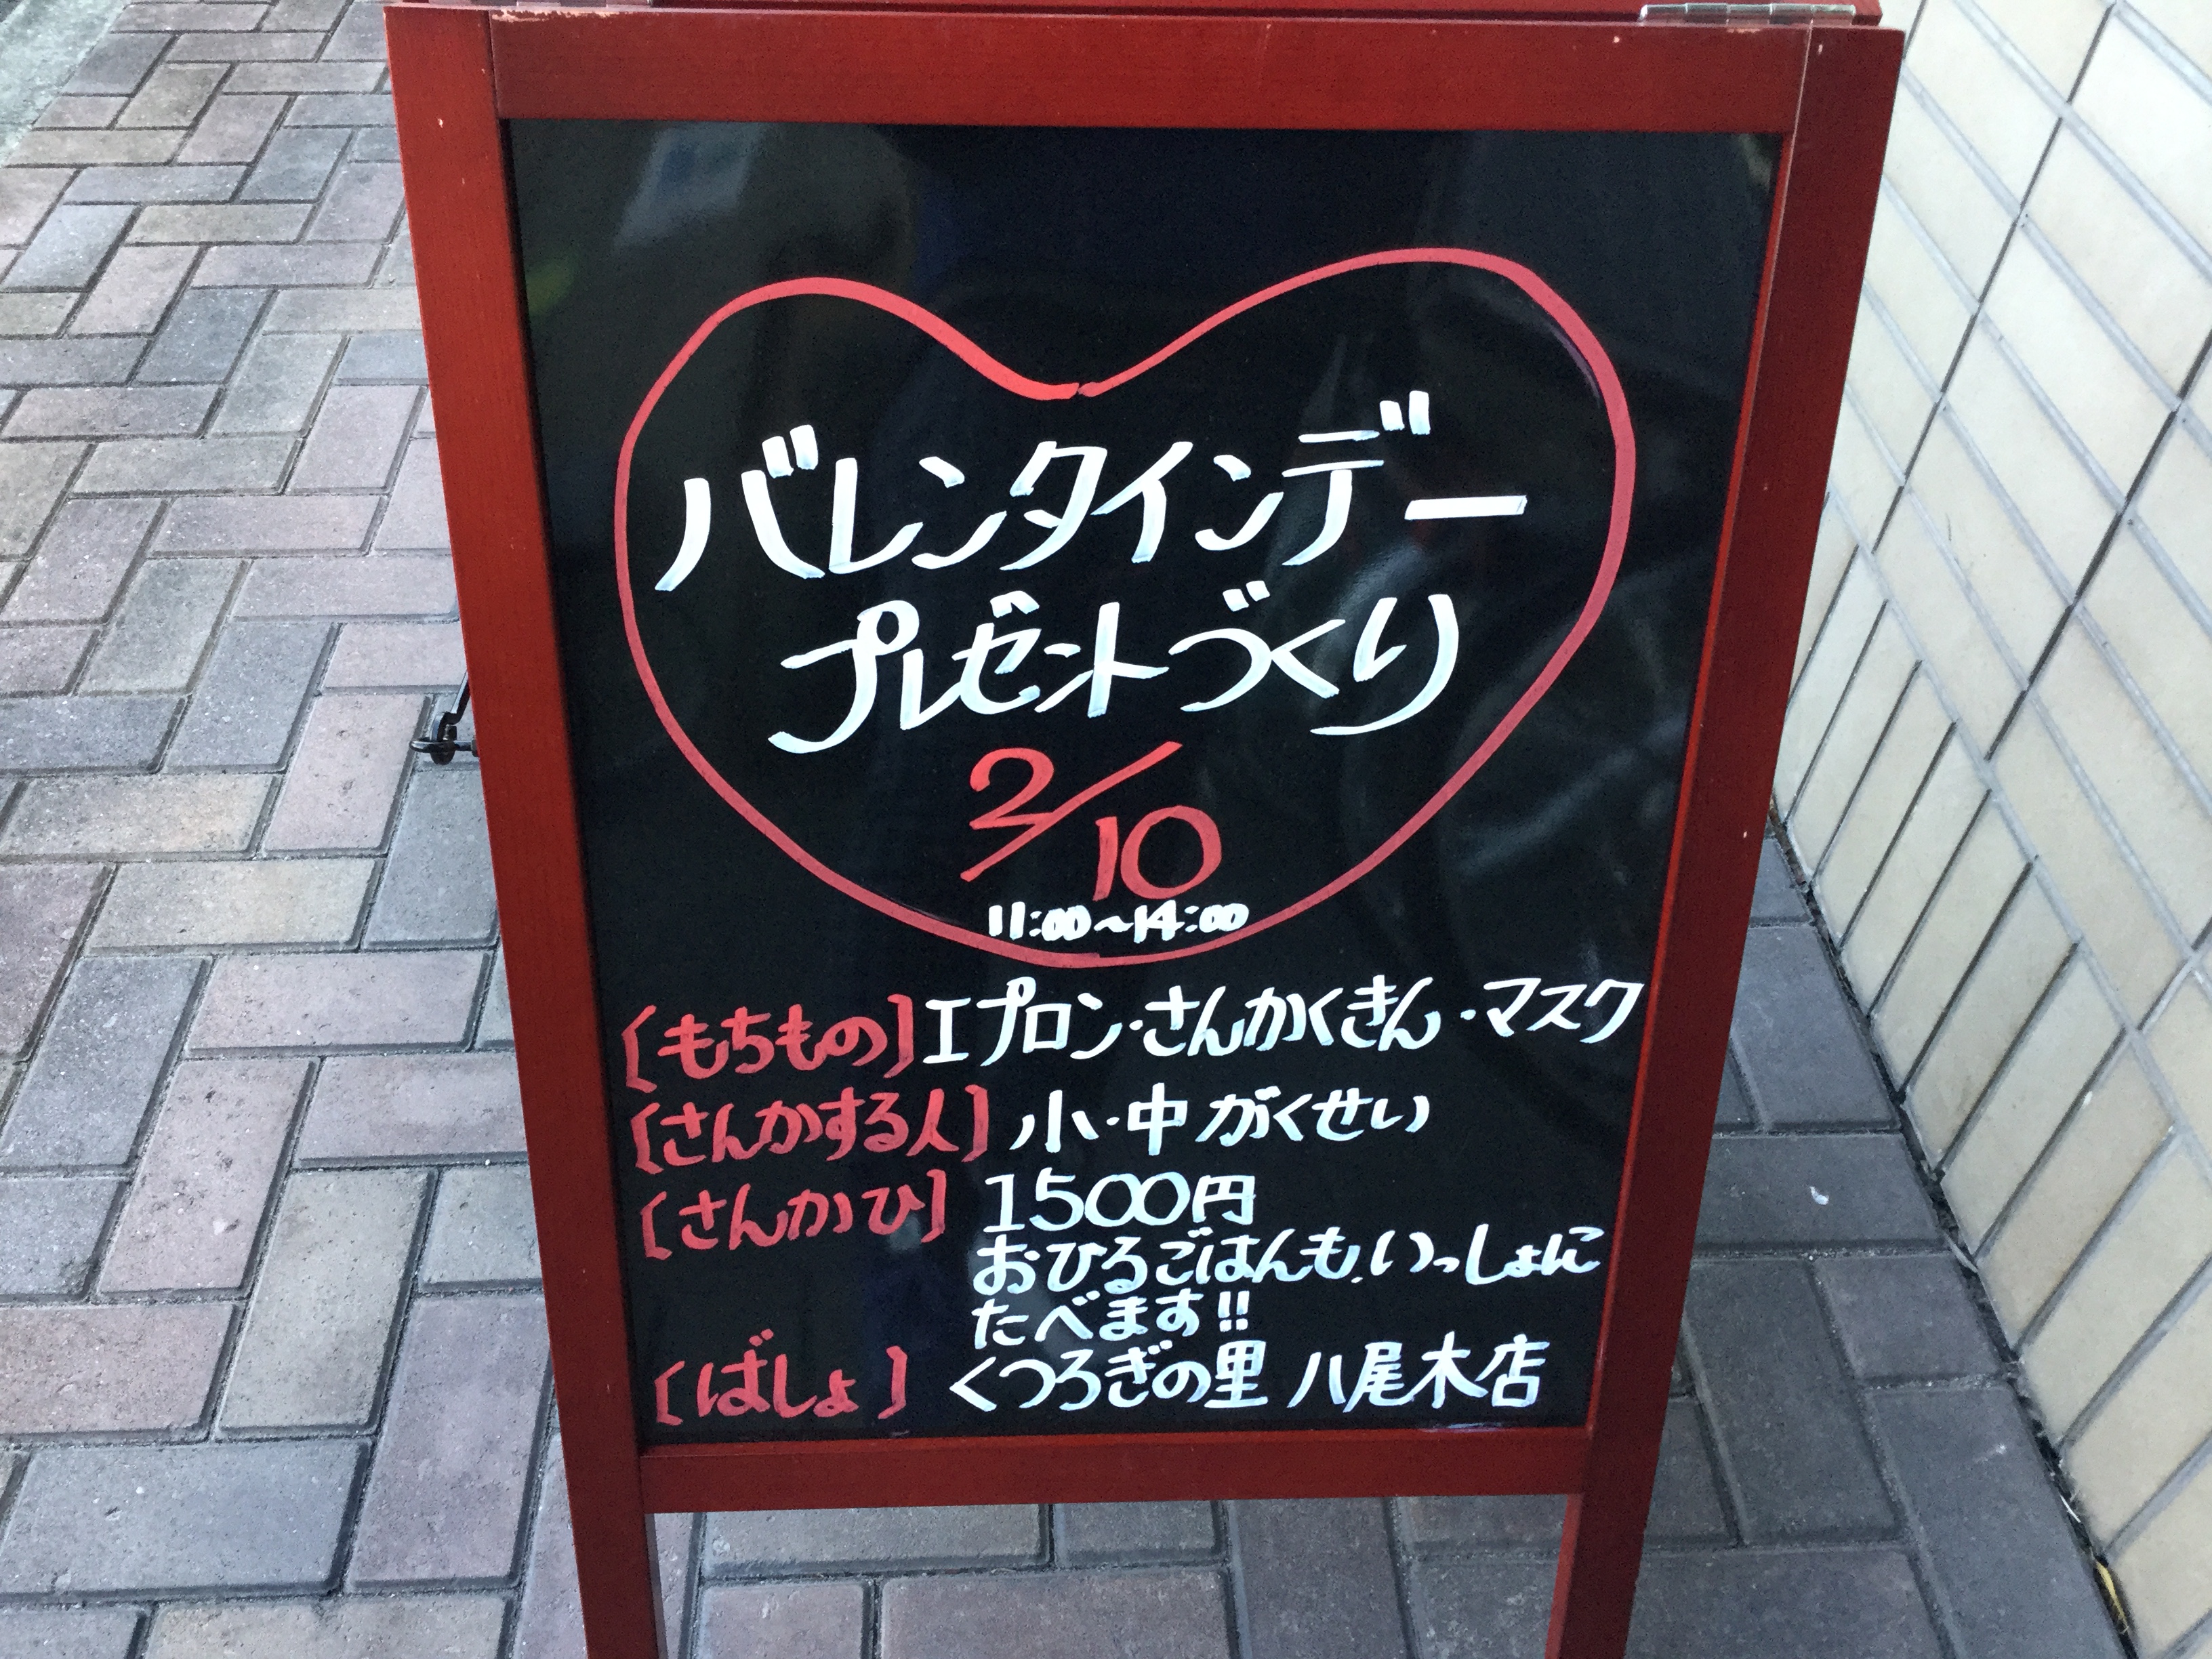 バレンタインデー
プレゼントづくり
2/10
11:00～14:00
[もちもの]エプロン・さんかくきん・マスク
[さんかする人]小・中がくせい
[さんかひ]1500円
おひるごはんも、いっしょに
たべます!!
[ばしょ]くつろぎの里 八尾木店